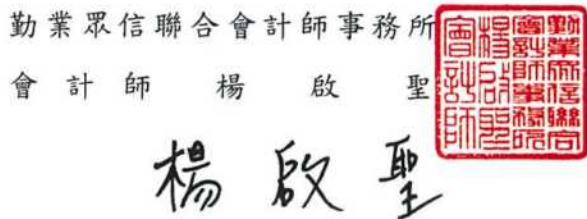 勤業眾信聯合會計師事務所
會計師 楊啟聖
楊啟聖
勤業眾信聯合
會計師事務所
楊啟聖
會計師